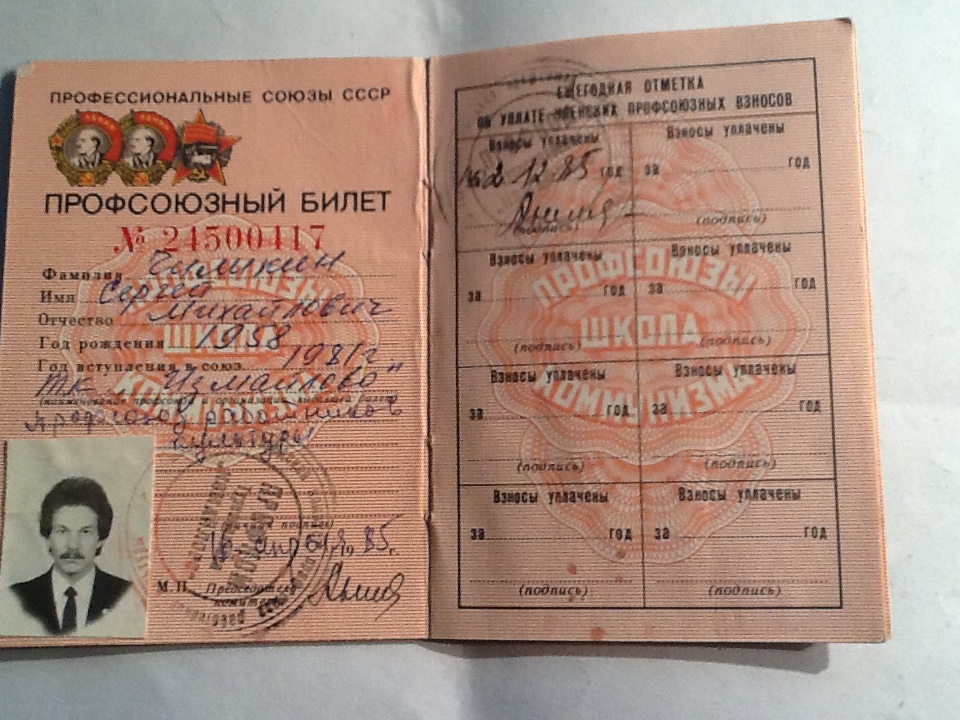 ПРОФЕССИОНАЛЬНЫЕ СОЮЗЫ СССР
ПРОФСОЮЗНЫЙ БИЛЕТ
№ 24500417
Фамилия Чиликин
Имя Сергей
Отчество Михайлович
Год рождения 1958
Год вступления в союз 1981г
ТК "Измайлово"
работников
культуры
ПРОФСОЮЗЫ
ШКОЛА
КОММУНИЗМА
(подпись)
85г.
М.П. Председатель
комитета
ЕЖЕГОДНАЯ ОТМЕТКА
ОБ УПЛАТЕ ЧЛЕНСКИХ ПРОФСОЮЗНЫХ ВЗНОСОВ
Взносы уплачены Взносы уплачены
12.85 год за год
(подпись) (подпись)
Взносы уплачены Взносы уплачены
за год за год
(подпись) (подпись)
Взносы уплачены Взносы уплачены
за год за год
(подпись) (подпись)
Взносы уплачены Взносы уплачены
за год за год
(подпись) (подпись)
ПРОФСОЮЗЫ
ШКОЛА
КОММУНИЗМА